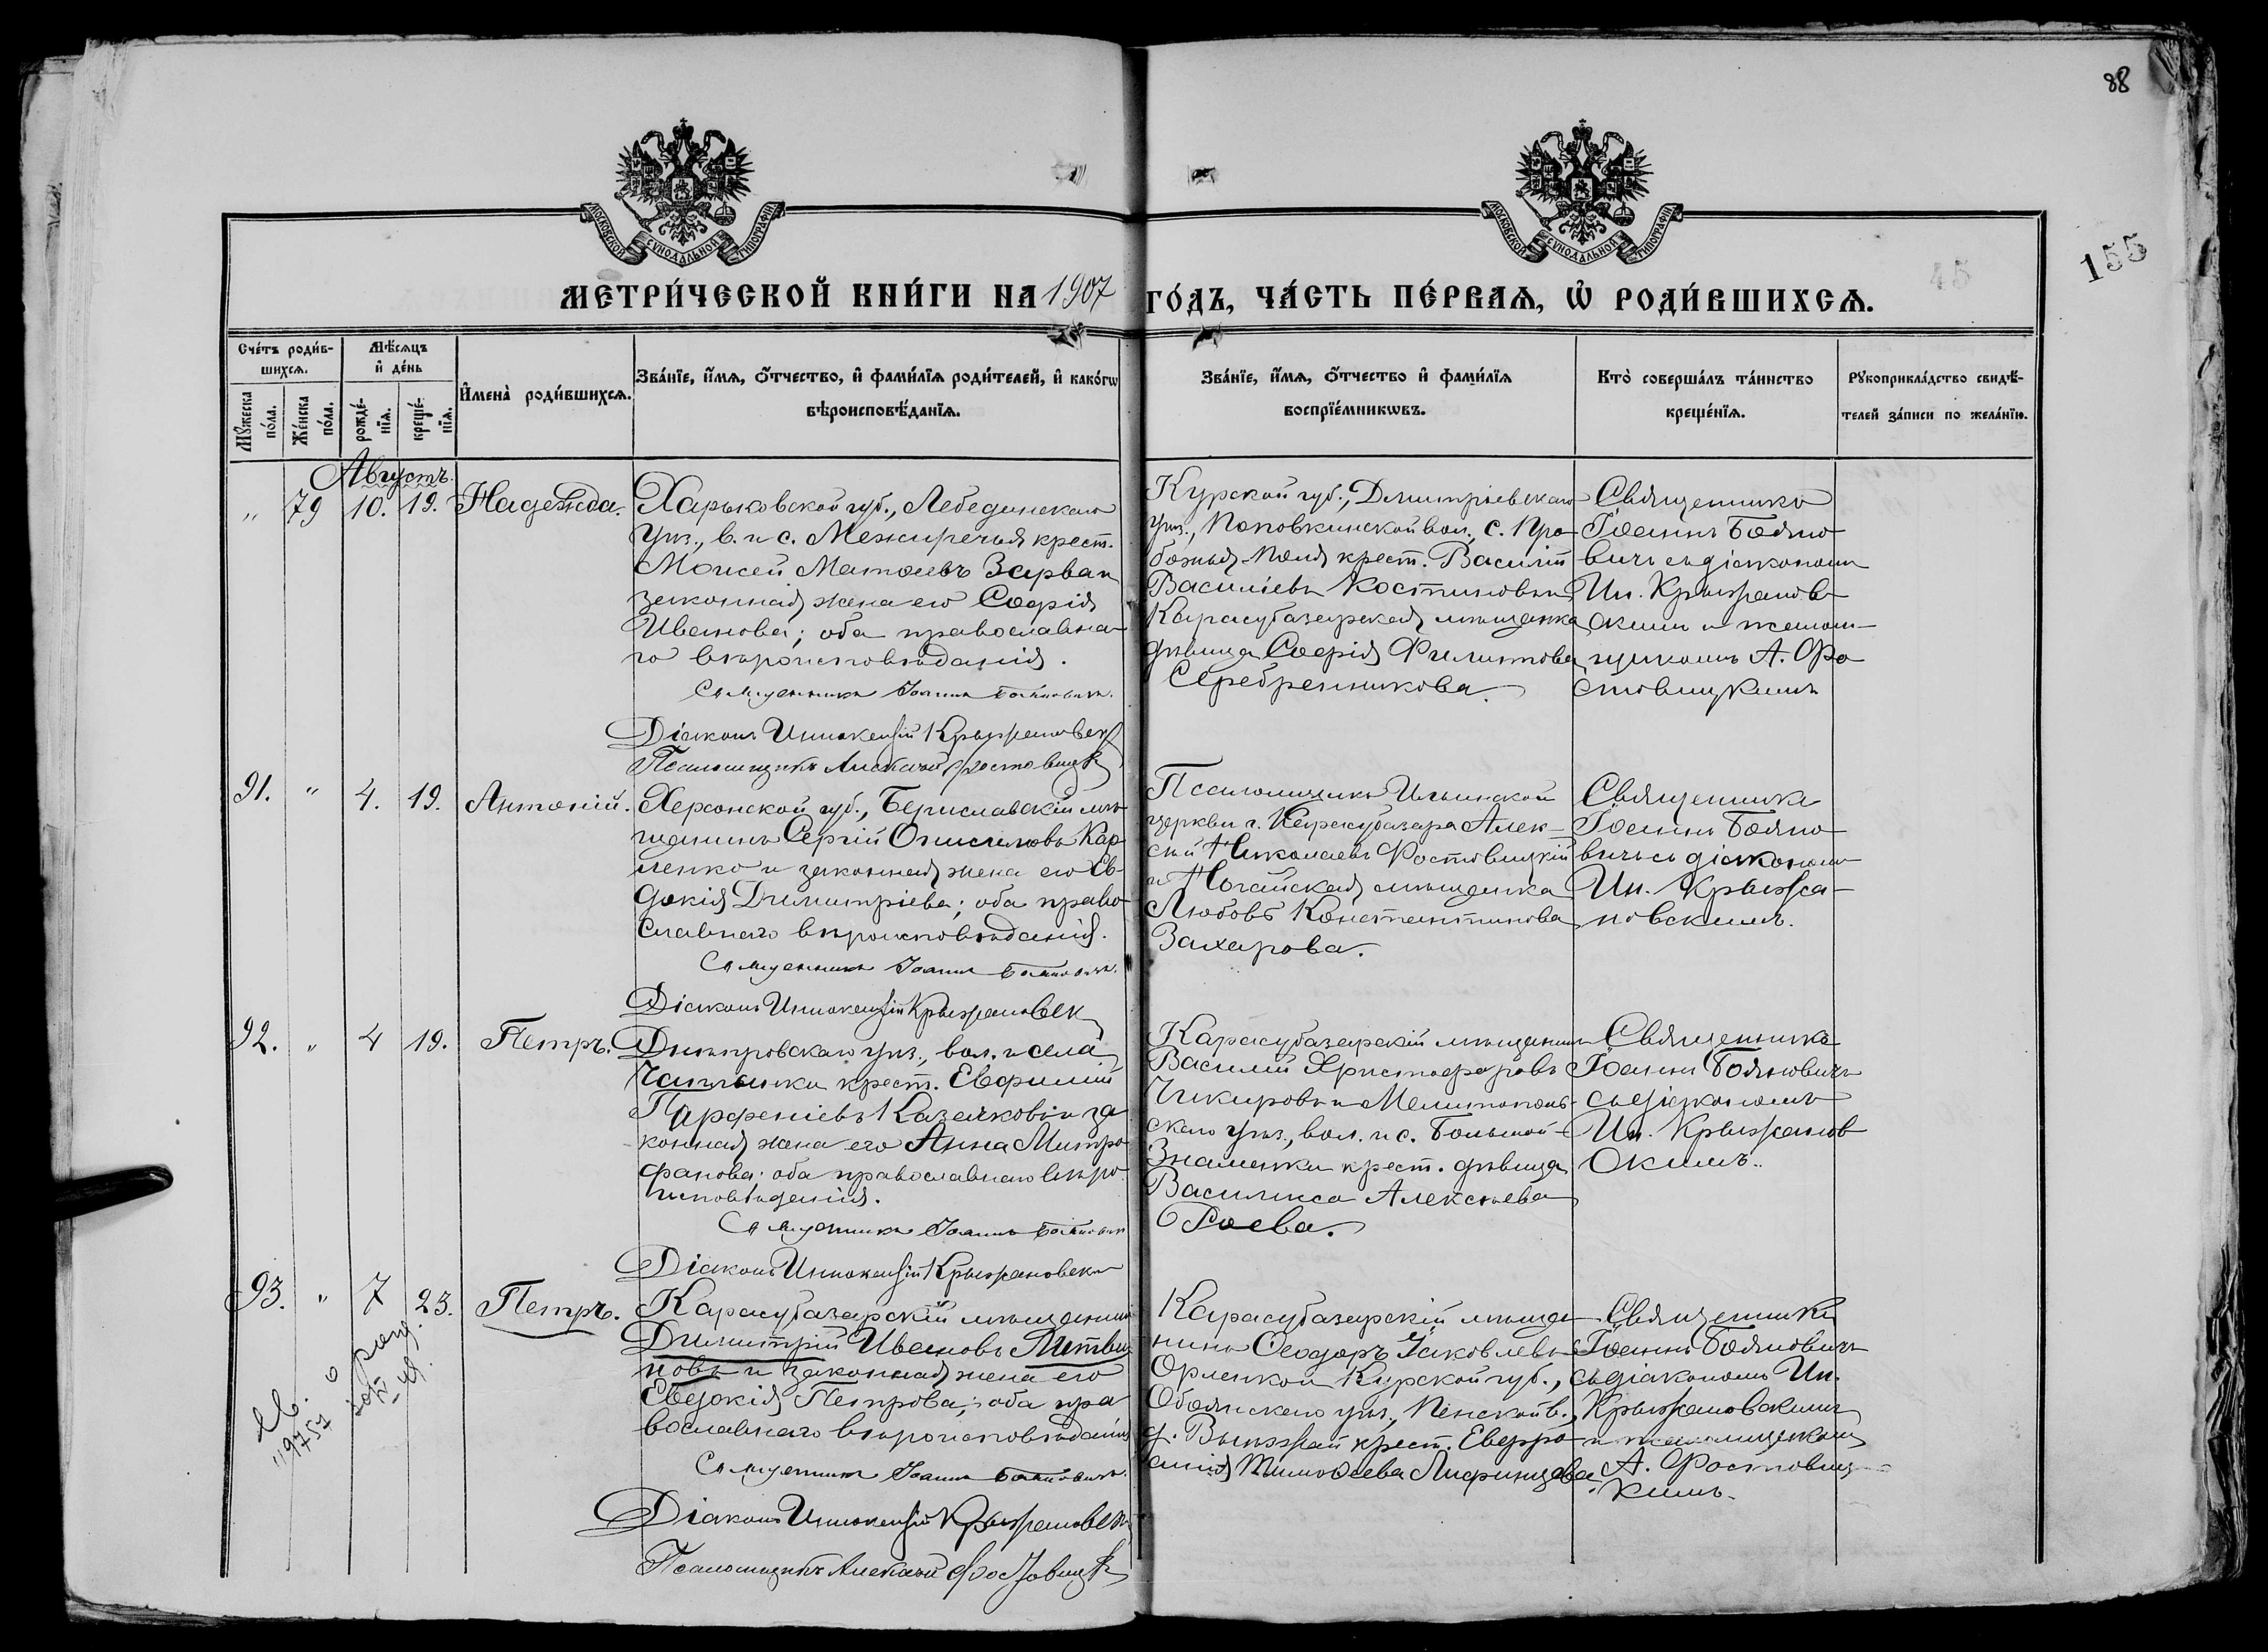 88
155
45
МОСКОВСКОЙ СУНОДАЛЬНОЙ ТИПОГРАФІИ
МОСКОВСКОЙ СУНОДАЛЬНОЙ ТИПОГРАФІИ
МЕТРИ́ЧЕСКОЙ КНИ́ГИ НА 1907 ГО́ДЪ, ЧА́СТЬ ПЕ́РВАѦ, Ѡ҆ РОДИ́ВШИХСѦ.
Сче́тъ роди́в-
шихсѧ.
Мѣ́сѧцъ
и҆ де́нь
Мꙋжеска
по́ла.
Же́нска
по́ла.
рожде́-
нїѧ.
креще́-
нїѧ.
И҆мена̀ роди́вшихсѧ.
Зва́нїе, и҆́мѧ, ѻ҆́тчество, и҆ фами́лїѧ роди́телей, и҆ како́гѡ
вѣроисповѣ́данїѧ.
Зва́нїе, и҆́мѧ, ѻ҆́тчество и҆ фами́лїѧ
воспрїе́мникѡвъ.
Кто̀ соверша́лъ та́инство
креще́нїѧ.
Рꙋкоприкла́дство свидѣ́-
телей за́писи по жела́нїю.
Августъ.
" 79 10. 19. Надежда.
Харьковской губ., Лебединскаго
уѣз., в. и с. Межиречья крест.
Моисей Матѳеевъ Зарван
законная жена его Софія
Иванова; оба православна-
го вѣроисповѣданія.
Священникъ Іоаннъ Бояновичъ.
Діаконъ Иннокентій Крыжановск
Псаломщикъ Алексѣй Ростовицк
Курской губ., Димитріевскаго
уѣз., Поповкинской вол., с. Про-
божья Поля крест. Василій
Васильевъ Костиковъ и
Карасубазарская мѣщанка
дѣвица Софія Филиппова
Серебренникова.
Священникъ
Іоаннъ Бояно-
вичъ съ діакономъ
Ин. Крыжанов-
скимъ и псалом-
щикомъ А. Ро
стовицкимъ
91. " 4. 19. Антоній.
Херсонской губ., Бериславскій мѣ-
щанинъ Сергій Онисимовъ Кар
пенко и законная жена его Ев-
докія Димитріева; оба право-
славнаго вѣроисповѣданія.
Священникъ Іоаннъ Бояновичъ.
Діаконъ Иннокентій Крыжановск
Псаломщикъ Ильинской
церкви г. Карасубазара Алек-
сѣй Николаевъ Ростовицкій
и Ногайская мѣщанка
Любовь Константинова
Захарова.
Священникъ
Іоаннъ Бояно-
вичъ съ діакономъ
Ин. Крыжа-
новскимъ.
92. " 4 19. Петръ.
Днѣпровскаго уѣз., вол. и села
Чаплынки крест. Евфимій
Парфеніевъ Казачковъ и за
конная жена его Анна Митро
фанова; оба православнаго вѣро
исповѣданія.
Священникъ Іоаннъ Бояновичъ
Діаконъ Иннокентій Крыжановск
Карасубазарскій мѣщанинъ
Василій Христофоровъ
Чикировъ и Мелитополь-
скаго уѣз., вол. и с. Большой-
Знаменки крест. дѣвица
Василиса Алексѣева
Роева.
Священникъ
Іоаннъ Бояновичъ
съ діакономъ
Ин. Крыжанов
скимъ.
93. " 7 23. Петръ.
Карасубазарскій мѣщанинъ
Димитрій Ивановъ Литви
новъ и законная жена его
Евдокія Петрова; оба пра
вославнаго вѣроисповѣданія
Священникъ Іоаннъ Бояновичъ.
Діаконъ Иннокентій Крыжановск
Псаломщикъ Алексѣй Ростовицк
Карасубазарскій мѣща-
нинъ Ѳеодоръ Іаковлевъ
Орленко и Курской губ.,
Обоянскаго уѣз., Пенской в.,
крест. Евфро-
Тимоѳеева
Священникъ
Іоаннъ Бояновичъ
съ діакономъ Ин.
Крыжановскимъ
и псаломщикомъ
А. Ростовиц-
кимъ.